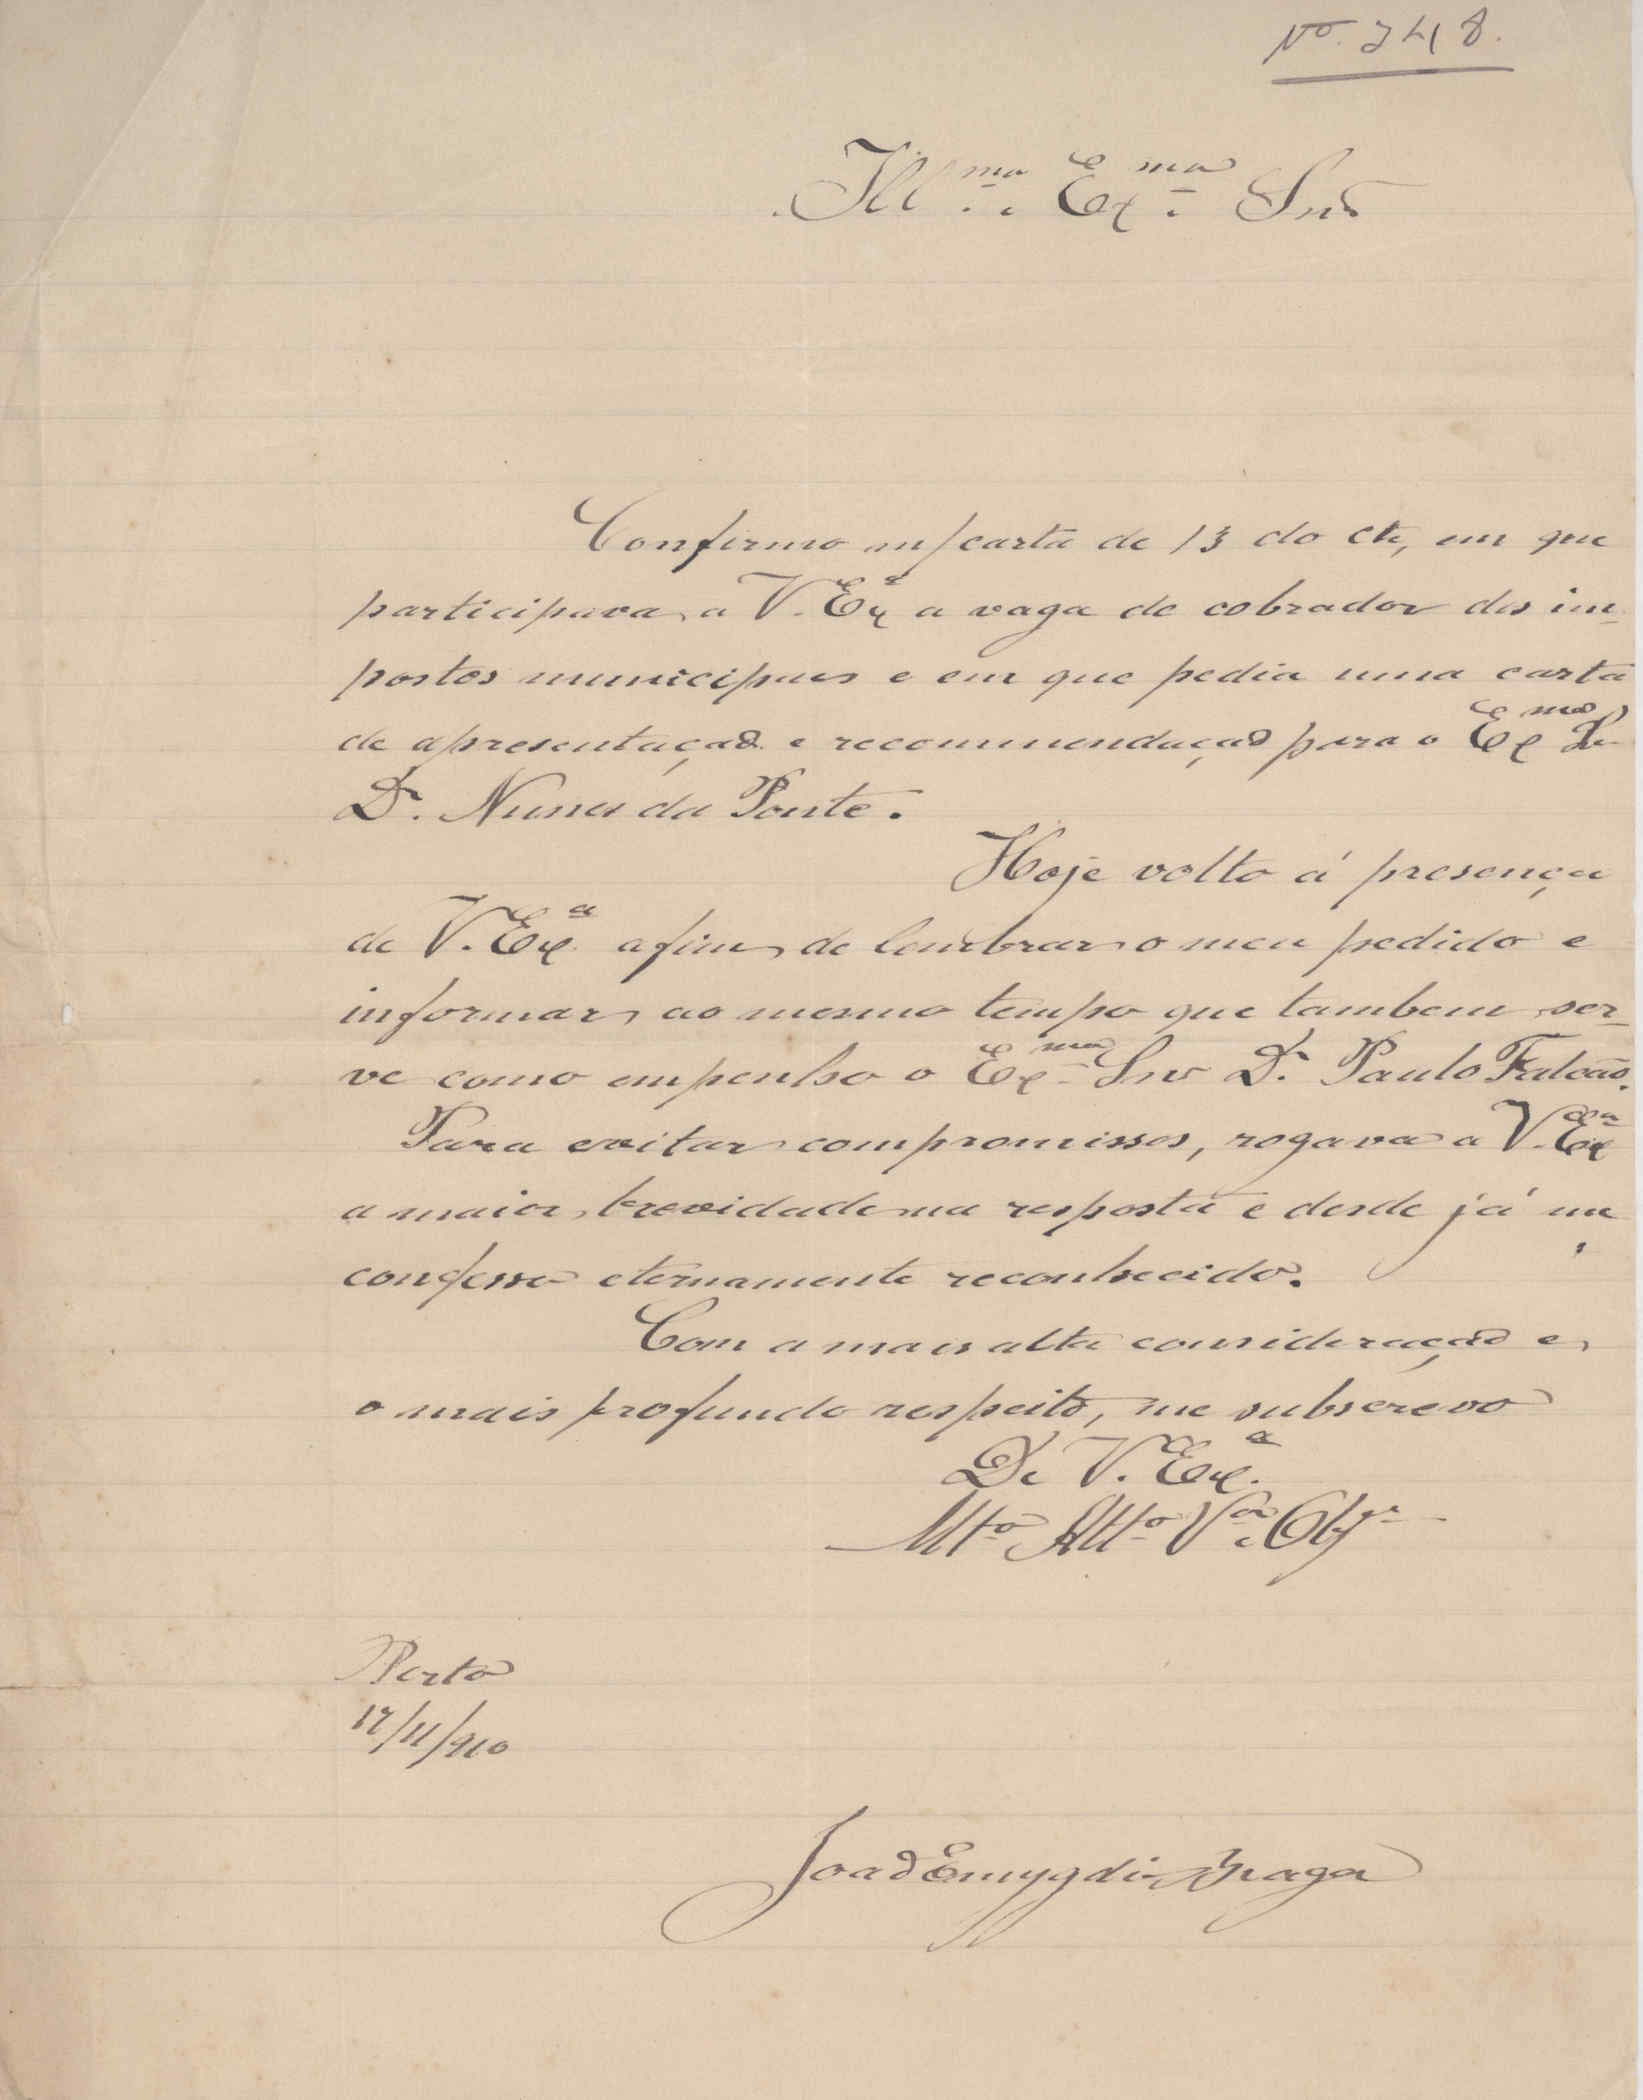 Nº. 248.
Ill.mo e Ex.mo Snr
Confirmo m/carta de 13 do cte, em que
participava a V. Exª a vaga de cobrador dos im-
postos municipaes e em que pedia uma carta
de apresentação e recommendação para o Exmo Sr
Dr. Nunes da Ponte.
Hoje volto á presença
de V. Exª afim de lembrar o meu pedido e
informar ao mesmo tempo que tambem ser-
ve como empenho o Exmo Snr Dr. Paulo Falcão.
Para evitar compromissos, rogava a V. Exª
a maior brevidade na resposta e desde já me
confesso eternamente reconhecido.
Com a mais alta consideração e
o mais profundo respeito, me subscrevo
De V. Exª
Mto Atto Vor e Obg
Porto
17/11/910
João Emygdio Braga